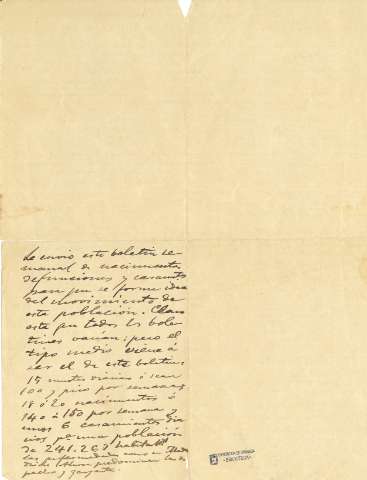 Le envio este boletin se-
manal de nacimientos,
defunciones y casamientos
para que se forme idea
del movimiento de
esta población. Claro
esta que todos los bole-
tines varían; pero el
tipo medio viene á
ser el de este boletin:
15 muertes diarias ó sean
100 y pico por semana y
18 ó 20 nacimientos ó
140 á 150 por semana y
unos 6 casamientos dia-
rios para una población
de 241.263 habitantes
las enfermedades como
pecho y garganta.